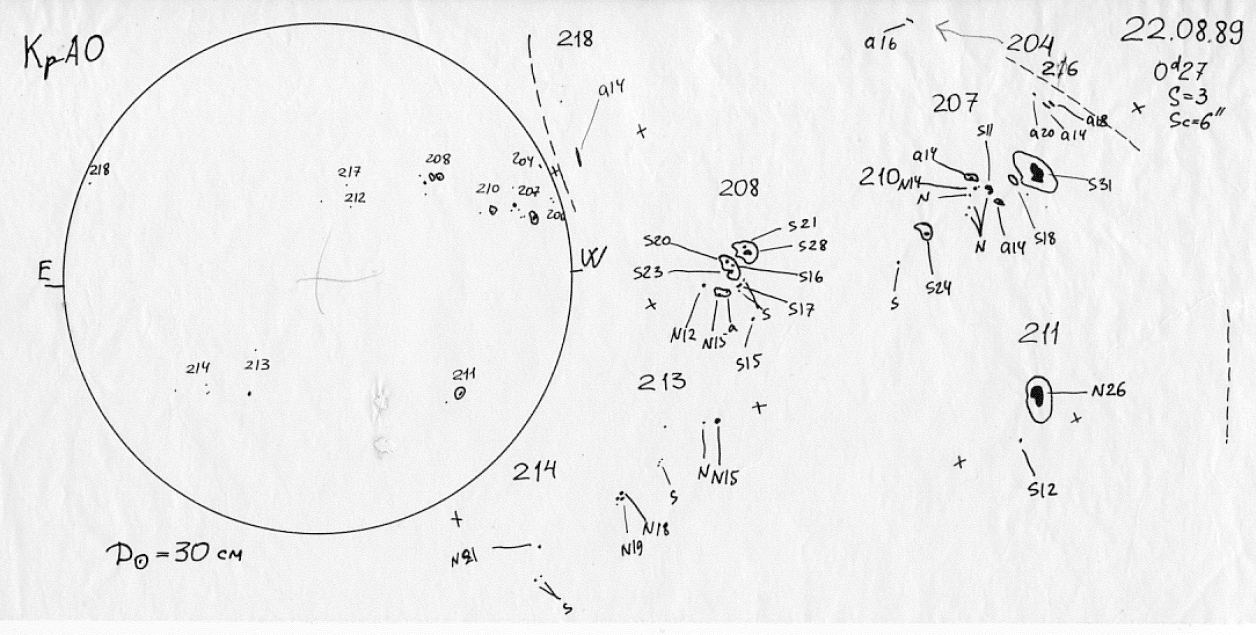 КрАО
218
a14
a16
204
22.08.89
216
0ᵈ27
S=3
Sc=6"
207
S11
a20 a14 a18
218
217
212
208
204
210 207
206
208
210
a14
N14
N
N a14 S18
S31
S24
S
S20
S21
S28
S23
S16
S17
S
N12 N15 a
S15
E
W
214
213
211
213
N N15
S
N18
N19
211
N26
S12
214
N21
S
D⊙ = 30 см